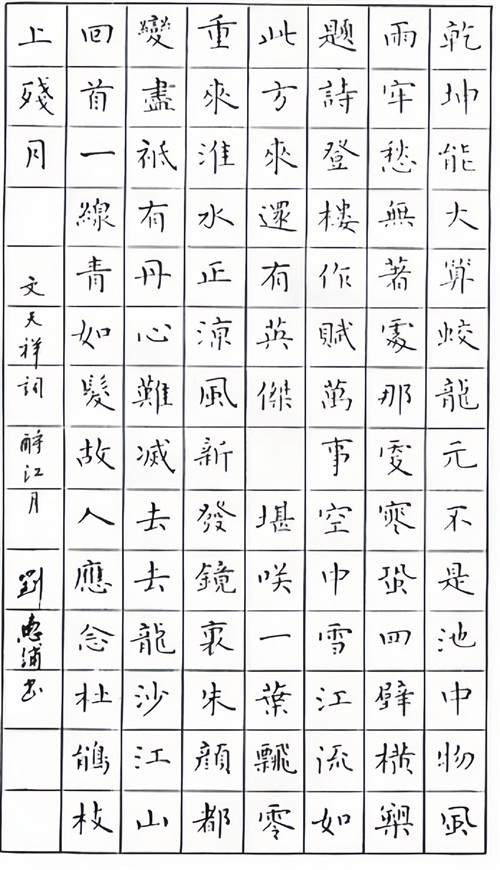 乾坤能大算蛟龍元不是池中物風
雨牢愁無著處那雯寒蛩四壁橫槊
題詩登樓作賦萬事空中雪江流如
此方來還有英傑 堪咲一葉飄零
重來淮水正涼風新發鏡裏朱顏都
變盡祗有丹心難滅去去龍沙江山
回首一線青如髮故人應念杜鵑枝
上殘月 文天祥詞 酹江月 劉惠浦書